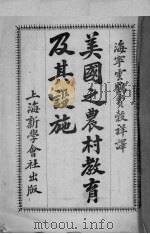 海寧雲
祥譯
美國之農村教育
及其設施
上海新學會社出版